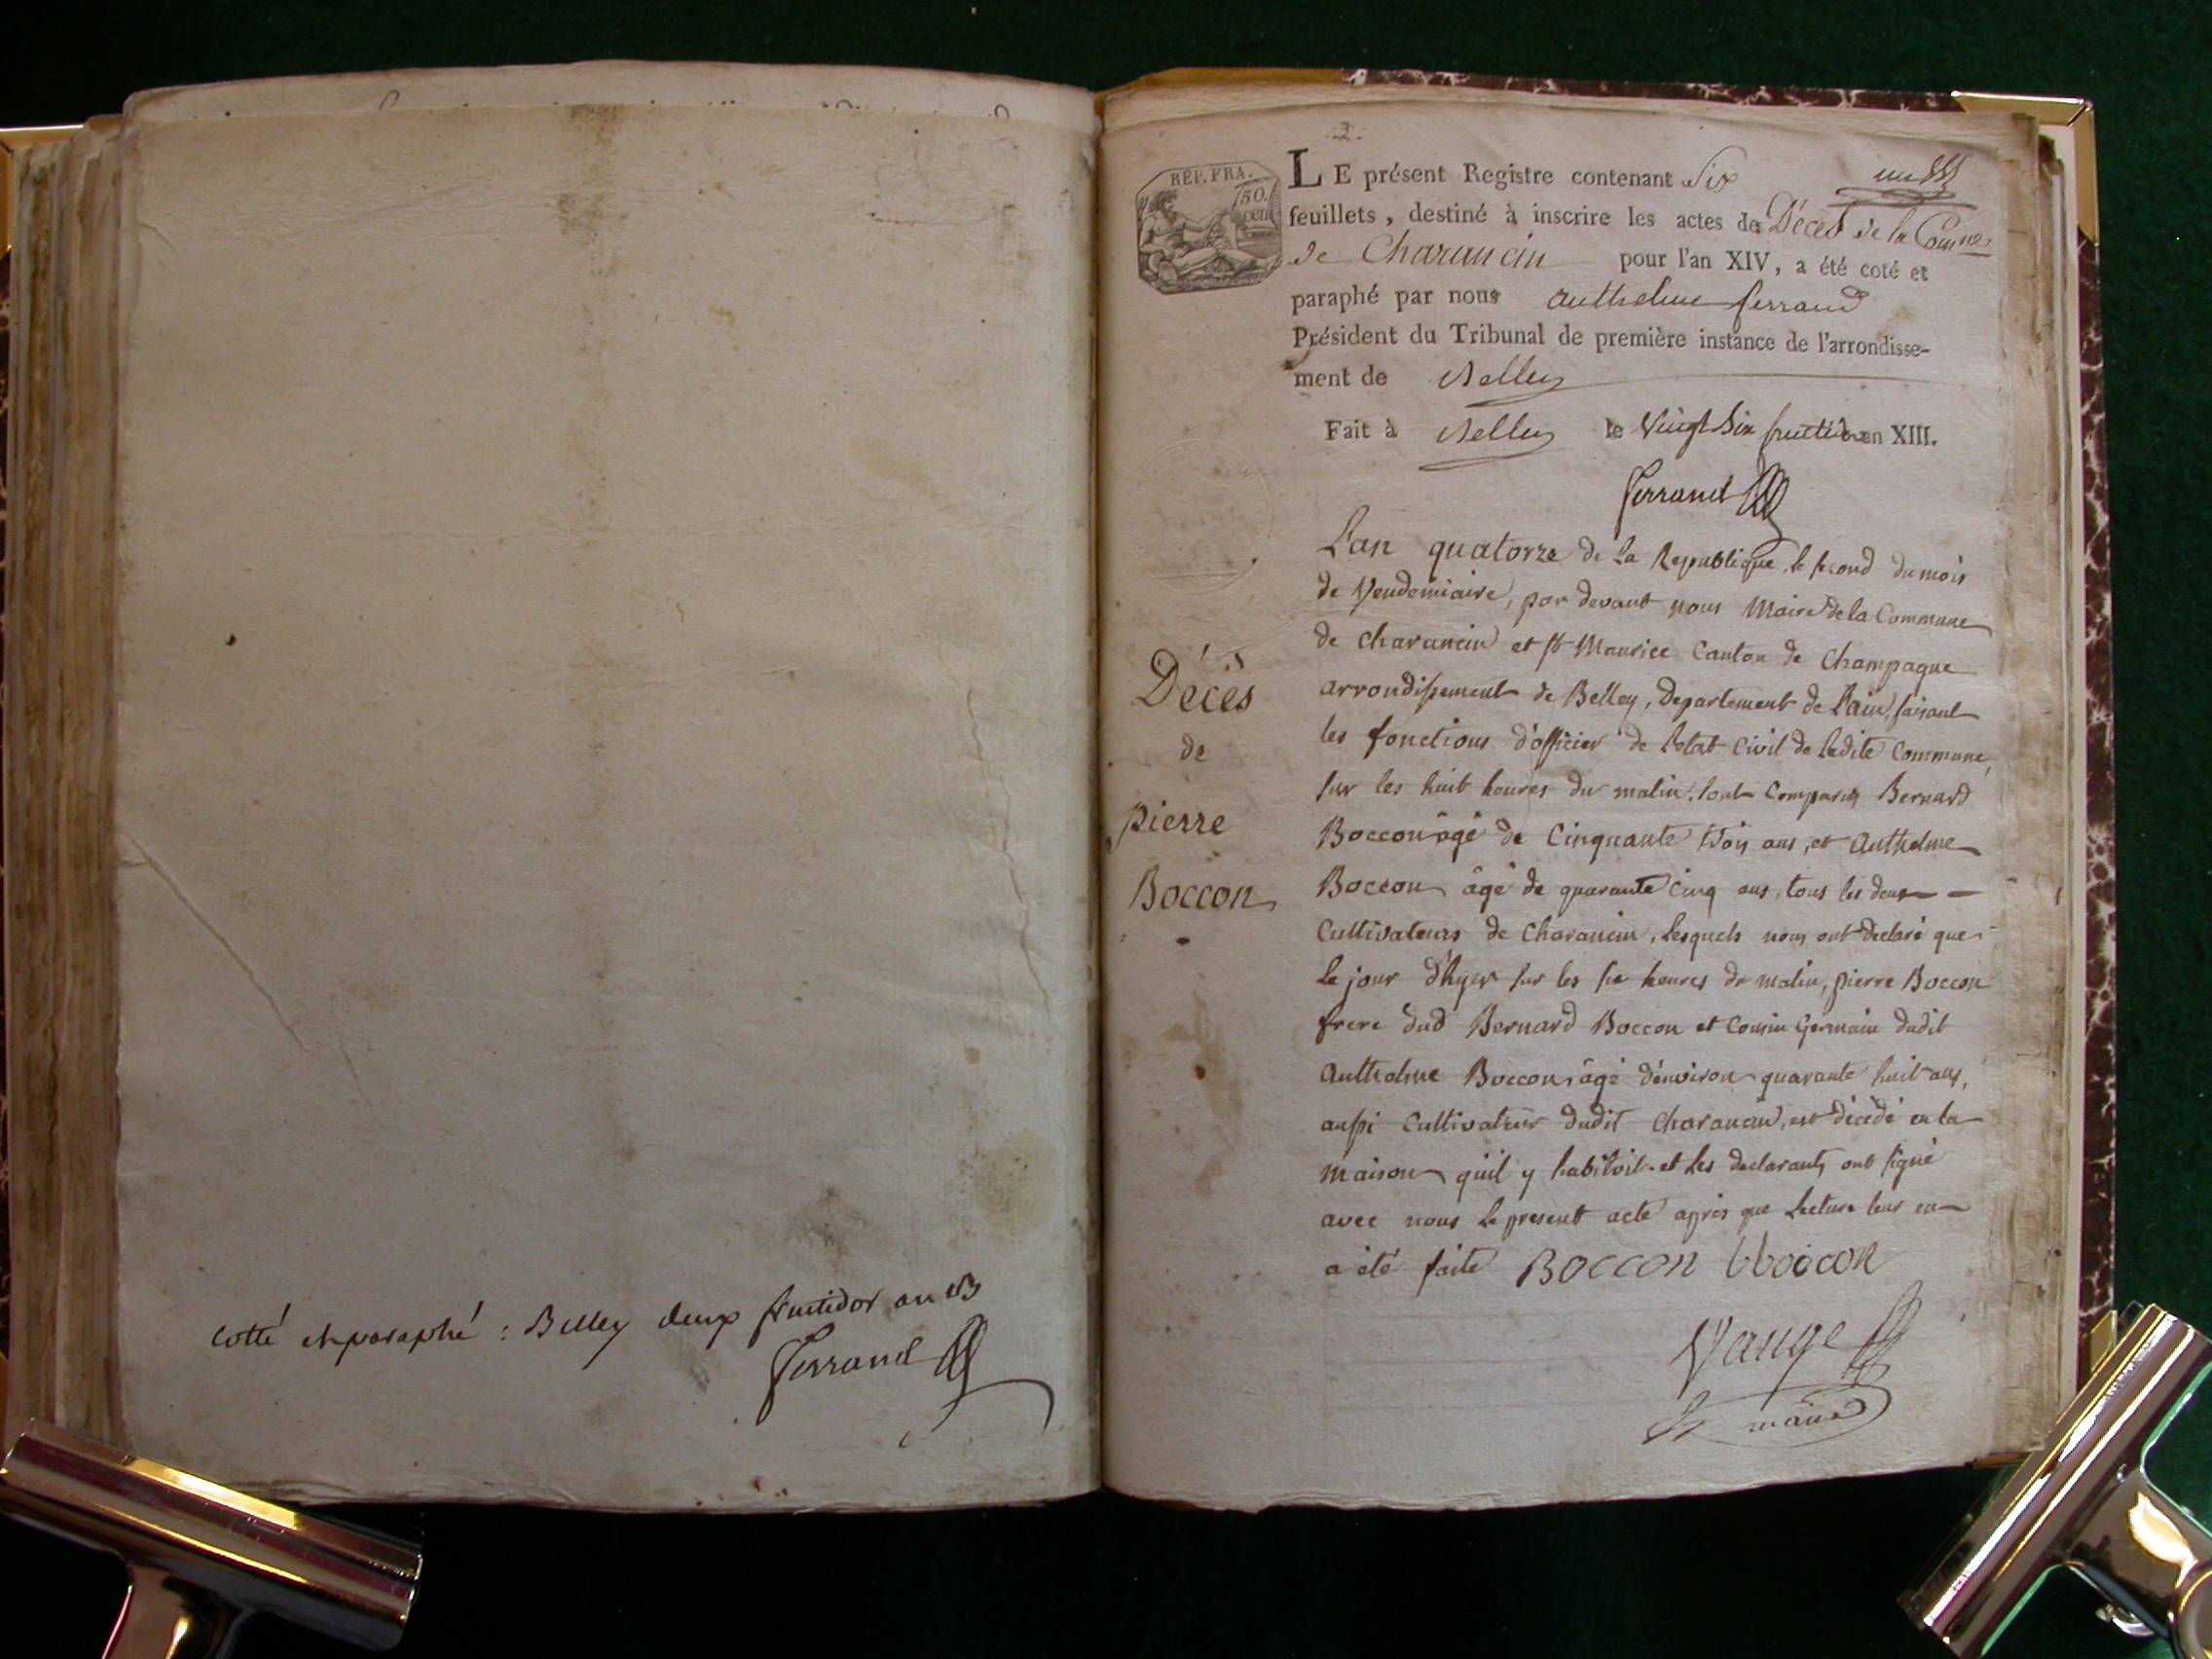 cotté et paraphé : Belley deux fructidor an 13
Ferrand
2.
REP. FRA.
50.
cen
LE présent Registre contenant Six
un
feuillets, destiné à inscrire les actes de Décès de la Comne
de Charancin pour l'an XIV, a été coté et
paraphé par nous anthelme ferrand
Président du Tribunal de première instance de l'arrondisse-
ment de Belley
Fait à Belley le Vingt Six fructidor an XIII.
Ferrand
L'an quatorze de la Republique, le second du mois
de Vendemiaire, par devant nous Maire de la Commune
de charancin et st Maurice Canton de Champagne
arrondissement de Belley, Departement de l'ain, faisant
les fonctions d'officier de l'etat Civil de ladite Commune,
sur les huit heures du matin, sont Comparus Bernard
Boccon âgé de Cinquante trois ans, et Anthelme
Boccon âgé de quarante cinq ans, tous les deux
Cultivateurs de Charancin, lesquels nous ont declaré que
le jour d'hyer sur les six heures du matin, pierre Boccon
frere dud Bernard Boccon et Cousin Germain dudit
Anthelme Boccon, âgé d'environ quarante huit ans,
aussi Cultivateur dudit Charancin, est décédé en la
maison qu'il y habitoit. et les declarants ont signé
avec nous le present acte après que lecture leur en
a été faite BOCCON bboccon
Vange
maire
Décès
de
pierre
Boccon